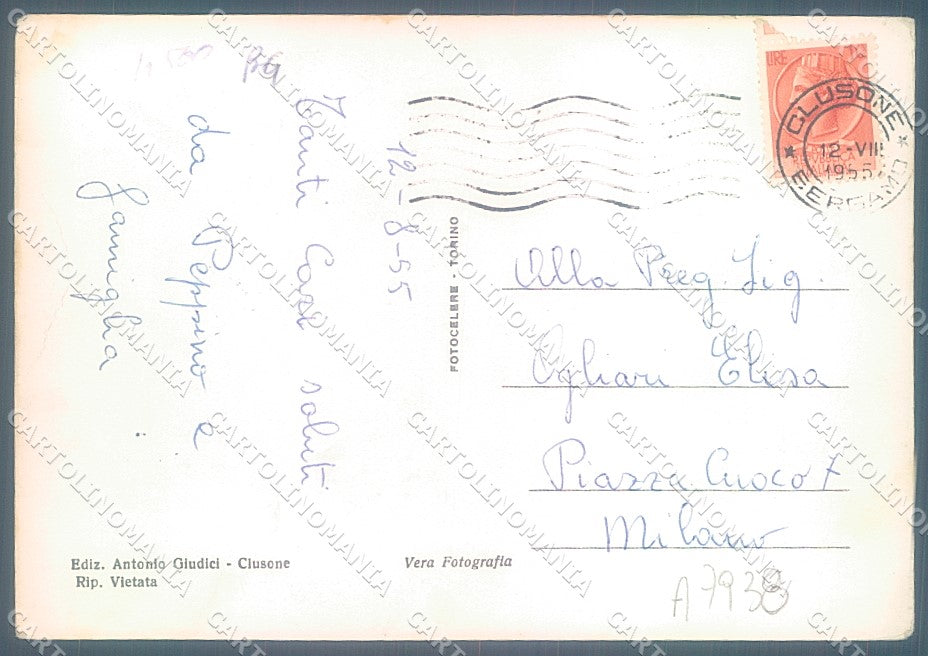 12-8-55
Tanti Cari saluti
da Peppino e
famiglia
FOTOCELERE - TORINO
CLUSONE
12-VIII
1955
BERGAMO
LIRE
Alla Preg. Sig.
Ogliari Elisa
Piazza Cuoco 7
Milano
Ediz. Antonio Giudici - Clusone
Rip. Vietata
Vera Fotografia
A 7938
CARTOLINOMANIA